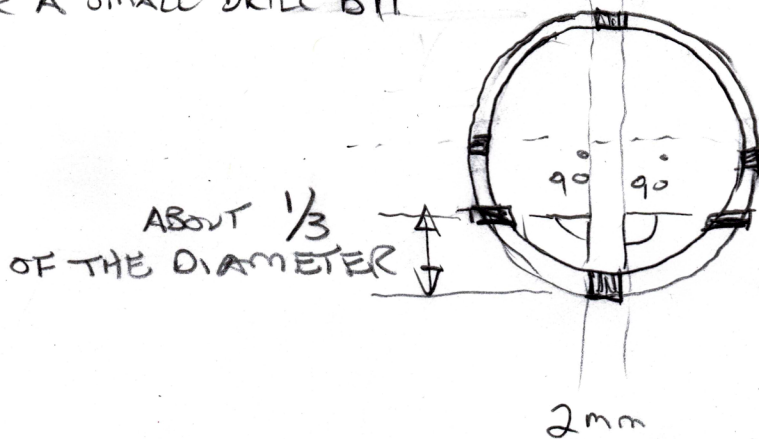 A SMALL DRILL BIT
90° 90°
ABOUT 1/3
OF THE DIAMETER
2mm